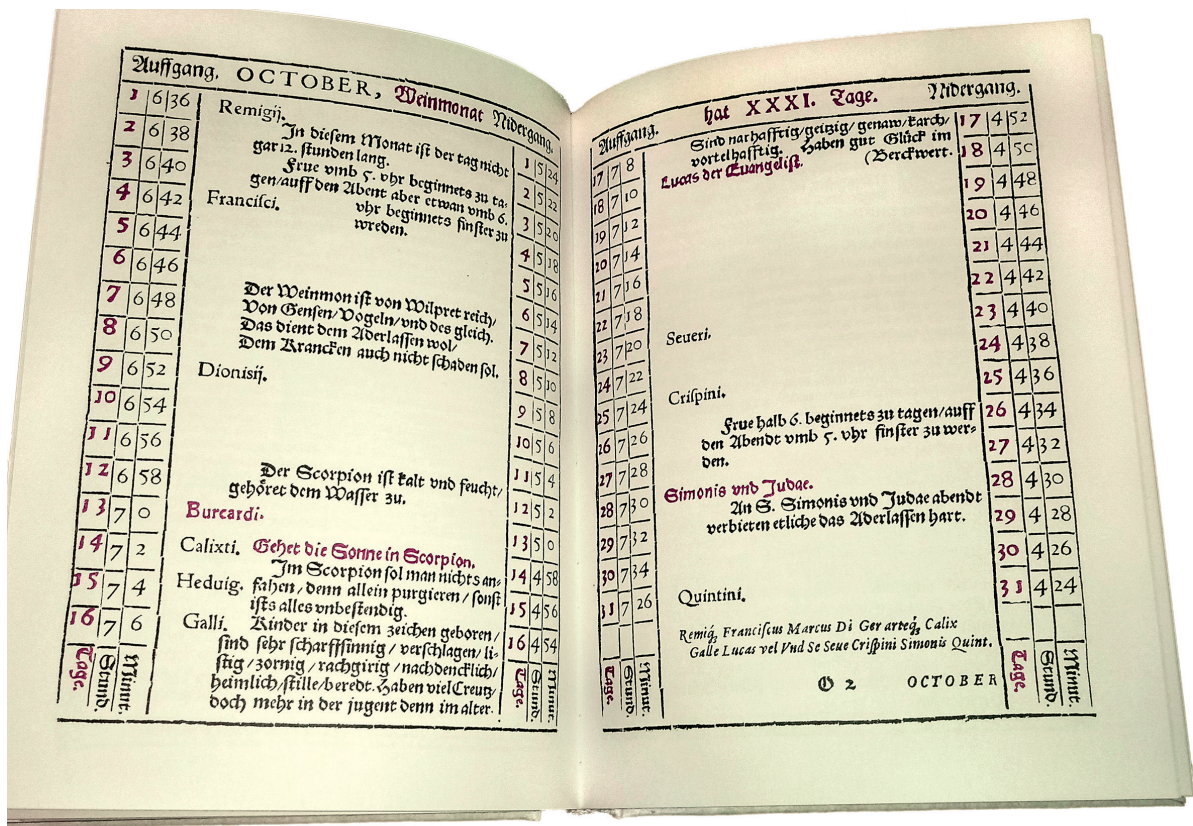 Auffgang. OCTOBER, Weinmonat Nidergang.
1 6 36
2 6 38
3 6 40
4 6 42
5 6 44
6 6 46
7 6 48
8 6 50
9 6 52
10 6 54
11 6 56
12 6 58
13 7 0
14 7 2
15 7 4
16 7 6
Tage. Stund. Minut.
Remigij.
In diesem Monat ist der tag nicht
gar 12. stunden lang.
Frue vmb 5. vhr beginnets zu ta-
gen/auff den Abent aber etwan vmb 6.
Francisci. vhr beginnets finster zu
wreden.
Der Weinmon ist von Wilpret reich/
Von Gensen/Vogeln/vnd des gleich.
Das dient dem Aderlassen wol/
Dem Krancken auch nicht schaden sol.
Dionisij.
Der Scorpion ist kalt vnd feucht/
gehöret dem Wasser zu.
Burcardi.
Calixti. Gehet die Sonne in Scorpion.
Im Scorpion sol man nichts an-
Heduig. fahen/denn allein purgieren/sonst
ists alles vnbestendig.
Galli. Kinder in diesem zeichen geboren/
sind sehr scharffsinnig/verschlagen/li-
stig/zornig/rachgirig/nachdencklich/
heimlich/stille/beredt. Haben viel Creutz/
doch mehr in der jugent denn im alter.
1 5 24
2 5 22
3 5 20
4 5 18
5 5 16
6 5 14
7 5 12
8 5 10
9 5 8
10 5 6
11 5 4
12 5 2
13 5 0
14 4 58
15 4 56
16 4 54
Tage. Stund. Minut.
Auffgang. hat XXXI. Tage. Nidergang.
17 7 8
18 7 10
19 7 12
20 7 14
21 7 16
22 7 18
23 7 20
24 7 22
25 7 24
26 7 26
27 7 28
28 7 30
29 7 32
30 7 34
31 7 26
Tage. Stund. Minut.
Sind narhafftig/geitzig/genaw/karch/
vortelhafftig. Haben gut Glück im
(Berckwert.
Lucas der Euangelist.
Seueri.
Crispini.
Frue halb 6. beginnets zu tagen/auff
den Abendt vmb 5. vhr finster zu wer-
den.
Simonis vnd Judae.
An S. Simonis vnd Judae abendt
verbieten etliche das Aderlassen hart.
Quintini.
Remiq; Franciscus Marcus Di Ger arteq; Calix
Galle Lucas vel Vnd Se Seue Crispini Simonis Quint.
O 2 OCTOBER
17 4 52
18 4 50
19 4 48
20 4 46
21 4 44
22 4 42
23 4 40
24 4 38
25 4 36
26 4 34
27 4 32
28 4 30
29 4 28
30 4 26
31 4 24
Tage. Stund. Minut.